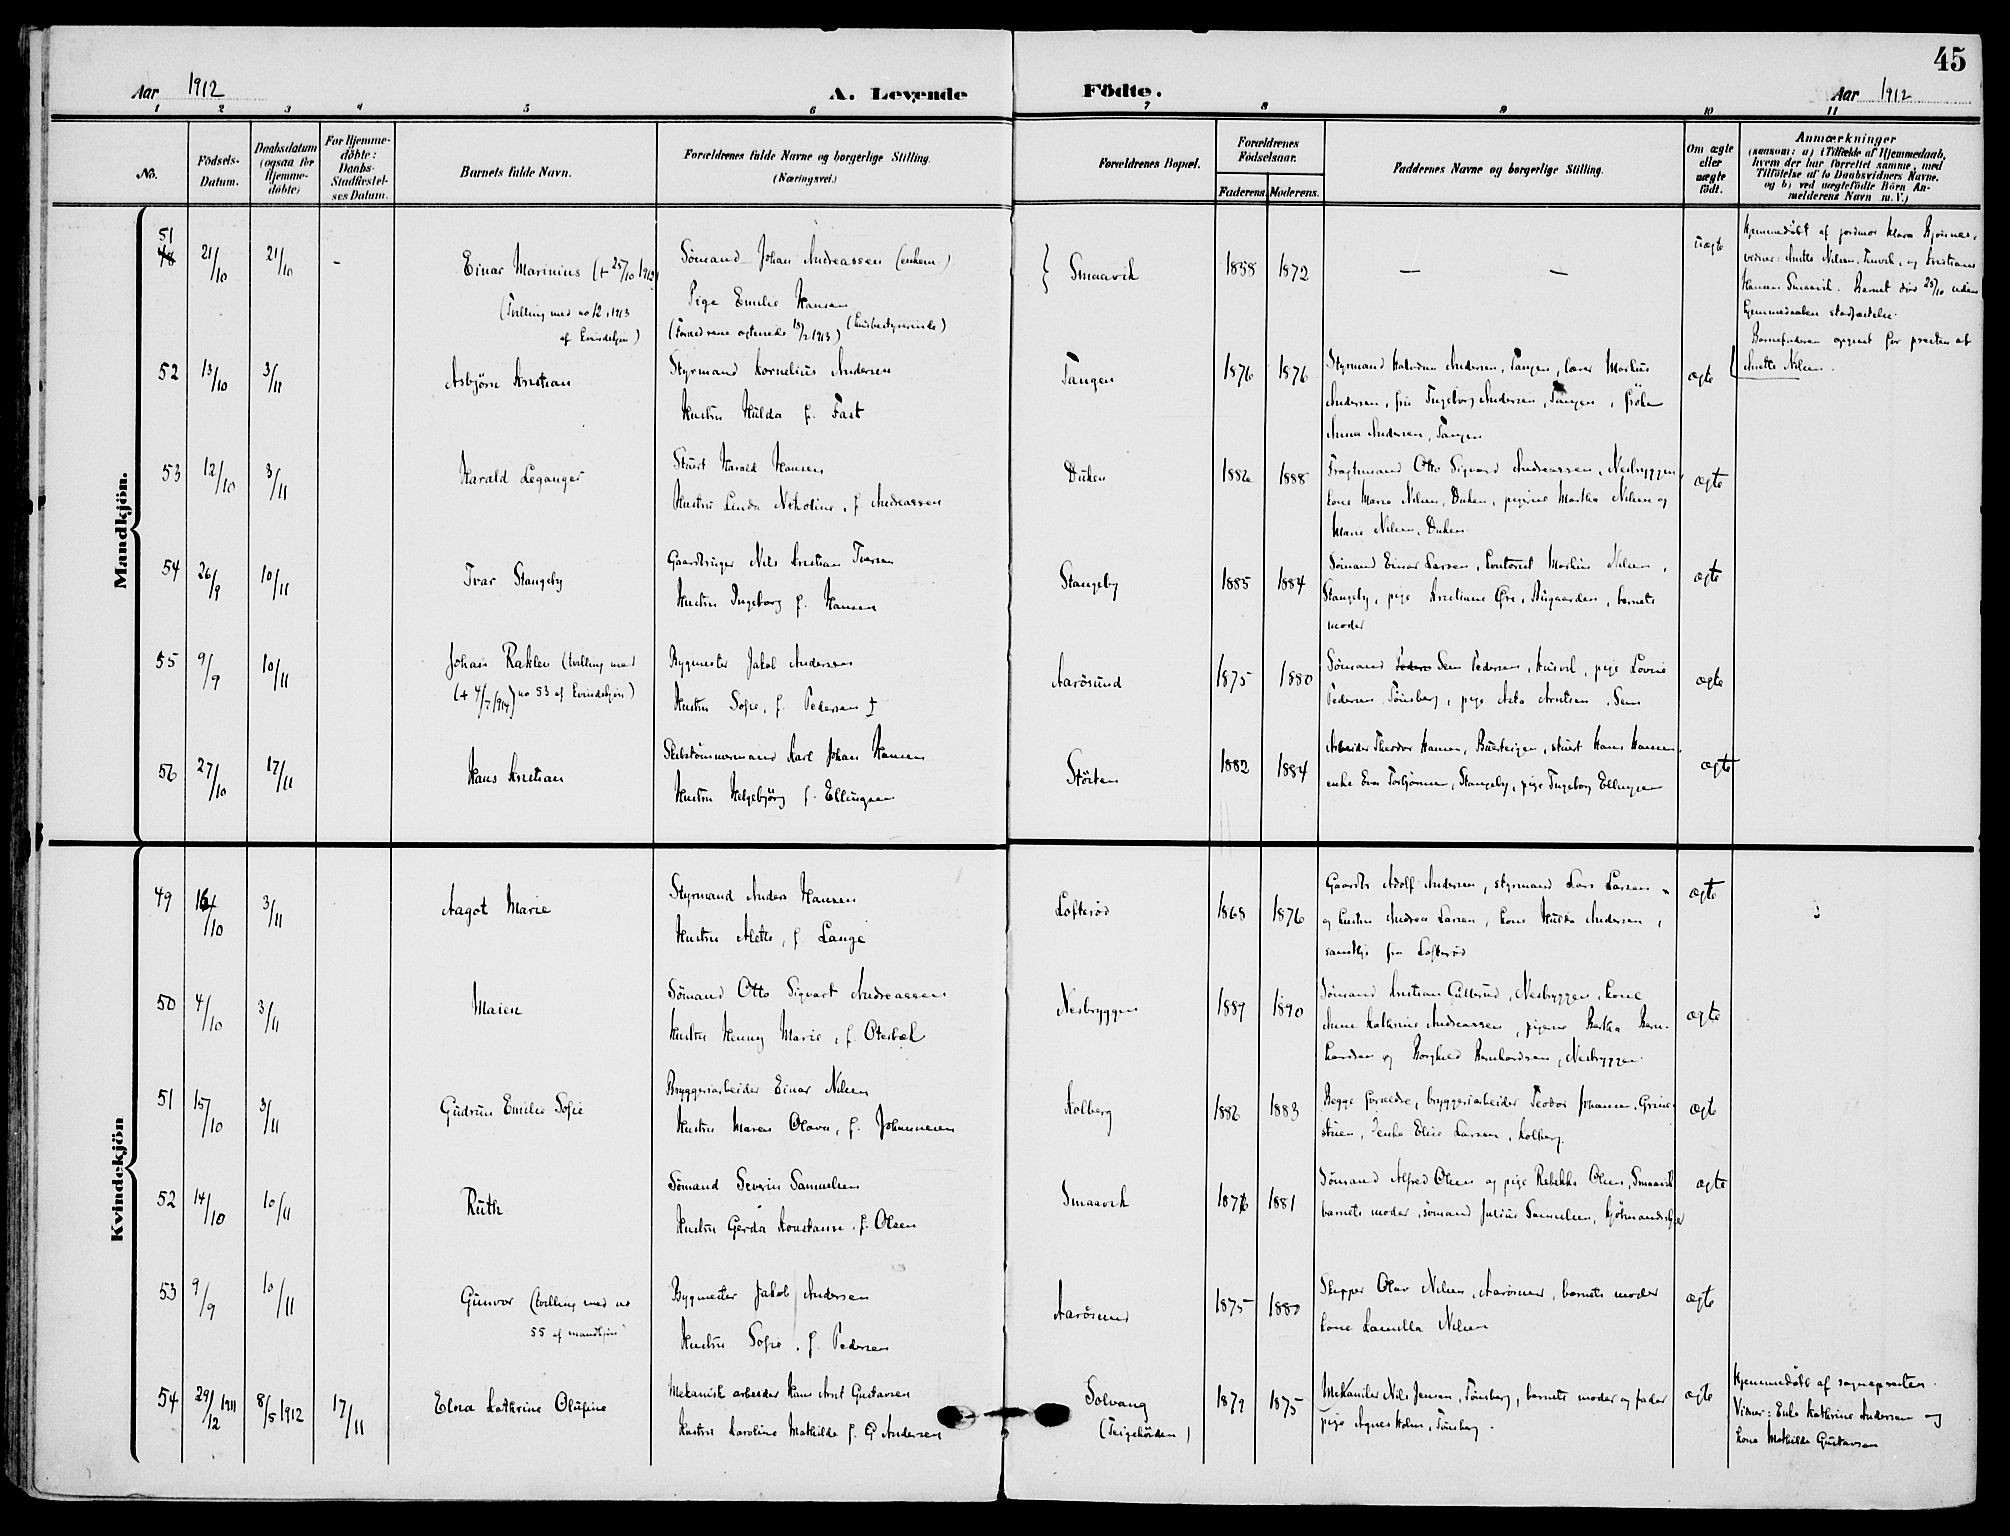 45
Aar 1912 A. Levende Födte. Aar 1912
1 2 3 4 5 6 7 8 9 10 11
No.
Födsels-Datum.
Daabsdatum (ogsaa for Hjemme-döbte)
For Hjemme-döbte: Daabs-Stadfæstel-ses Datum.
Barnets fulde Navn.
Forældrenes fulde Navne og borgerlige Stilling. (Næringsvei.)
Forældrenes Bopæl.
Forældrenes Födselsaar.
Faderens. Moderens.
Faddernes Navne og borgerlige Stilling.
Om ægte eller uægte födt.
Anmærkninger
(saasom: a) i Tilfælde af Hjemmedaab,
hvem der har forrettet samme, med
Tilföielse af to Daabsvidners Navne.
og b) ved uægtefödte Börn An-
melderens Navn m.V.)
Mandkjön.
51
48 21/10 21/10 - Einar Marinius (+ 25/10 1912)
(Tvilling med no 12, 1913
af kvindekjøn)
Sømand Johan Andreassen (enkem.)
Pige Emilie Hansen
(Forældrene ægteviede 15/2 1913) (Husbestyrerinde)
Smaavik 1858 1872 — — uægte
Hjemmedøbt af jordmor Klara
vidner: Anette Nilsen, og Kristiane
Hansen Smaavik. Barnet død 25/10 uden
hjemmedaaben stadfæstelse.
Barnefaderen opgivet for presten af
Anette Nilsen.
52 13/10 3/11 Asbjörn Kristian
Styrmand Kornelius Andersen
Hustru Hulda f. Fast
Tangen 1876 1876
Styrmand Andersen, Tangen, lærer Markus
Andersen, frü Ingeborg Andersen, Tangen, fröken
Anna Andersen, Tangen
ægte
53 12/10 3/11 Harald Leganger
Stuert Harald Hansen
Hustru Linda Nikoline, f. Andreassen
Duken 1882 1888
Fragtmand Otto Sigvard Andreassen, Nesbryggen,
kone Marie Nilsen, Duken, pigerne Martha Nilsen og
Marie Nilsen, Duken
ægte
54 26/9 10/11 Ivar Stangeby
Gaardbruger Nils Kristian Iversen
Hustru Ingeborg f. Hansen
Stangeby 1885 1884
Sømand Einar Larsen, Kontorist Markus Nilsen,
Stangeby, pige Kristiane Øre, Bugaarden, barnets
moder
ægte
55 9/9 10/11 Johan Raklev (tvilling med
(+ 4/7 1914) no 53 af kvindekjøn)
Bygmester Jakob Andersen
Hustru Sofie, f. Pedersen
Aarösund 1875 1880
Sømand Sem Pedersen, Husvik, pige Lovise
Pedersen Tönsberg, pige Asta Kristiansen, Sem
ægte
56 27/10 17/11 Hans Kristian
Skibstömmermand Karl Johan Hansen
Hustru Helgebjörg f. Ellingsen
Störten 1882 1884
Arbeider Theodor Hansen, Buerstigen, stuert Hans Hansen,
enke Eva Torbjörnsen, Stangeby, pige Ingeborg Ellingsen
ægte
Kvindekjön
49 16/10 3/11 Aagot Marie
Styrmand Anders Hansen
Hustru Alette, f. Lange
Lofteröd 1868 1876
Gaardbr Adolf Andersen, styrmand Lars Larsen
og hustru Andrea Larsen, kone Hulda Andersen,
samtlige fra Lofteröd
ægte
50 4/10 3/11 Maien
Sömand Otto Sigvart Andreassen
Hustru Henny Marie, f. Oterbæk
Nesbryggen 1889 1890
Sømand Kristian Gulbrud, Nesbryggen, kone
Anne Kathrine Andreassen, pigerne Bertha Bern-
hardsen og Borghild Bernhardsen, Nesbryggen
ægte
51 15/10 3/11 Gudrun Emilie Sofie
Bryggeriarbeider Einar Nilsen
Hustru Maren Olava, f. Johannesen
Kolberg 1882 1883
Begge forældre, bryggeriarbeider Teodor Johansen, Grine-
stuen, Elise Larsen, Kolberg.
ægte
52 14/10 10/11 Ruth
Sömand Severin Samuelsen
Hustru Gerda Konstanse, f. Olsen
Smaavik 1876 1881
Sömand Alfred Olsen og pige Rebekka Olsen, Smaavik
barnets moder, sömand Julius Samuelsen, Kjöbmandskjær
ægte
53 9/9 10/11 Gunvor (tvilling med no
55 af mandkjøn
Bygmester Jakob Andersen
Hustru Sofie, f. Pedersen
Aarösund 1875 1880
Skipper Olav Nilsen, Aarösund, barnets moder
kone Lamilla Nilsen
ægte
54 29/12 1911 8/5 1912 17/11 Elna Kathrine Olufine
Mekanisk arbeider Hans Arnt Gustavsen
Hustru Karoline Mathilde f. G Andersen
Solvang
(Teigehöiden)
1879 1875
Mekaniker Nils Jensen, Tönsberg, barnets moder og fader
pige Agnes Holm, Tönsberg.
ægte
Hjemmedøbt af sognepresten.
Vidner: Enke Kathrine Andersen og
kone Mathilde Gustavsen